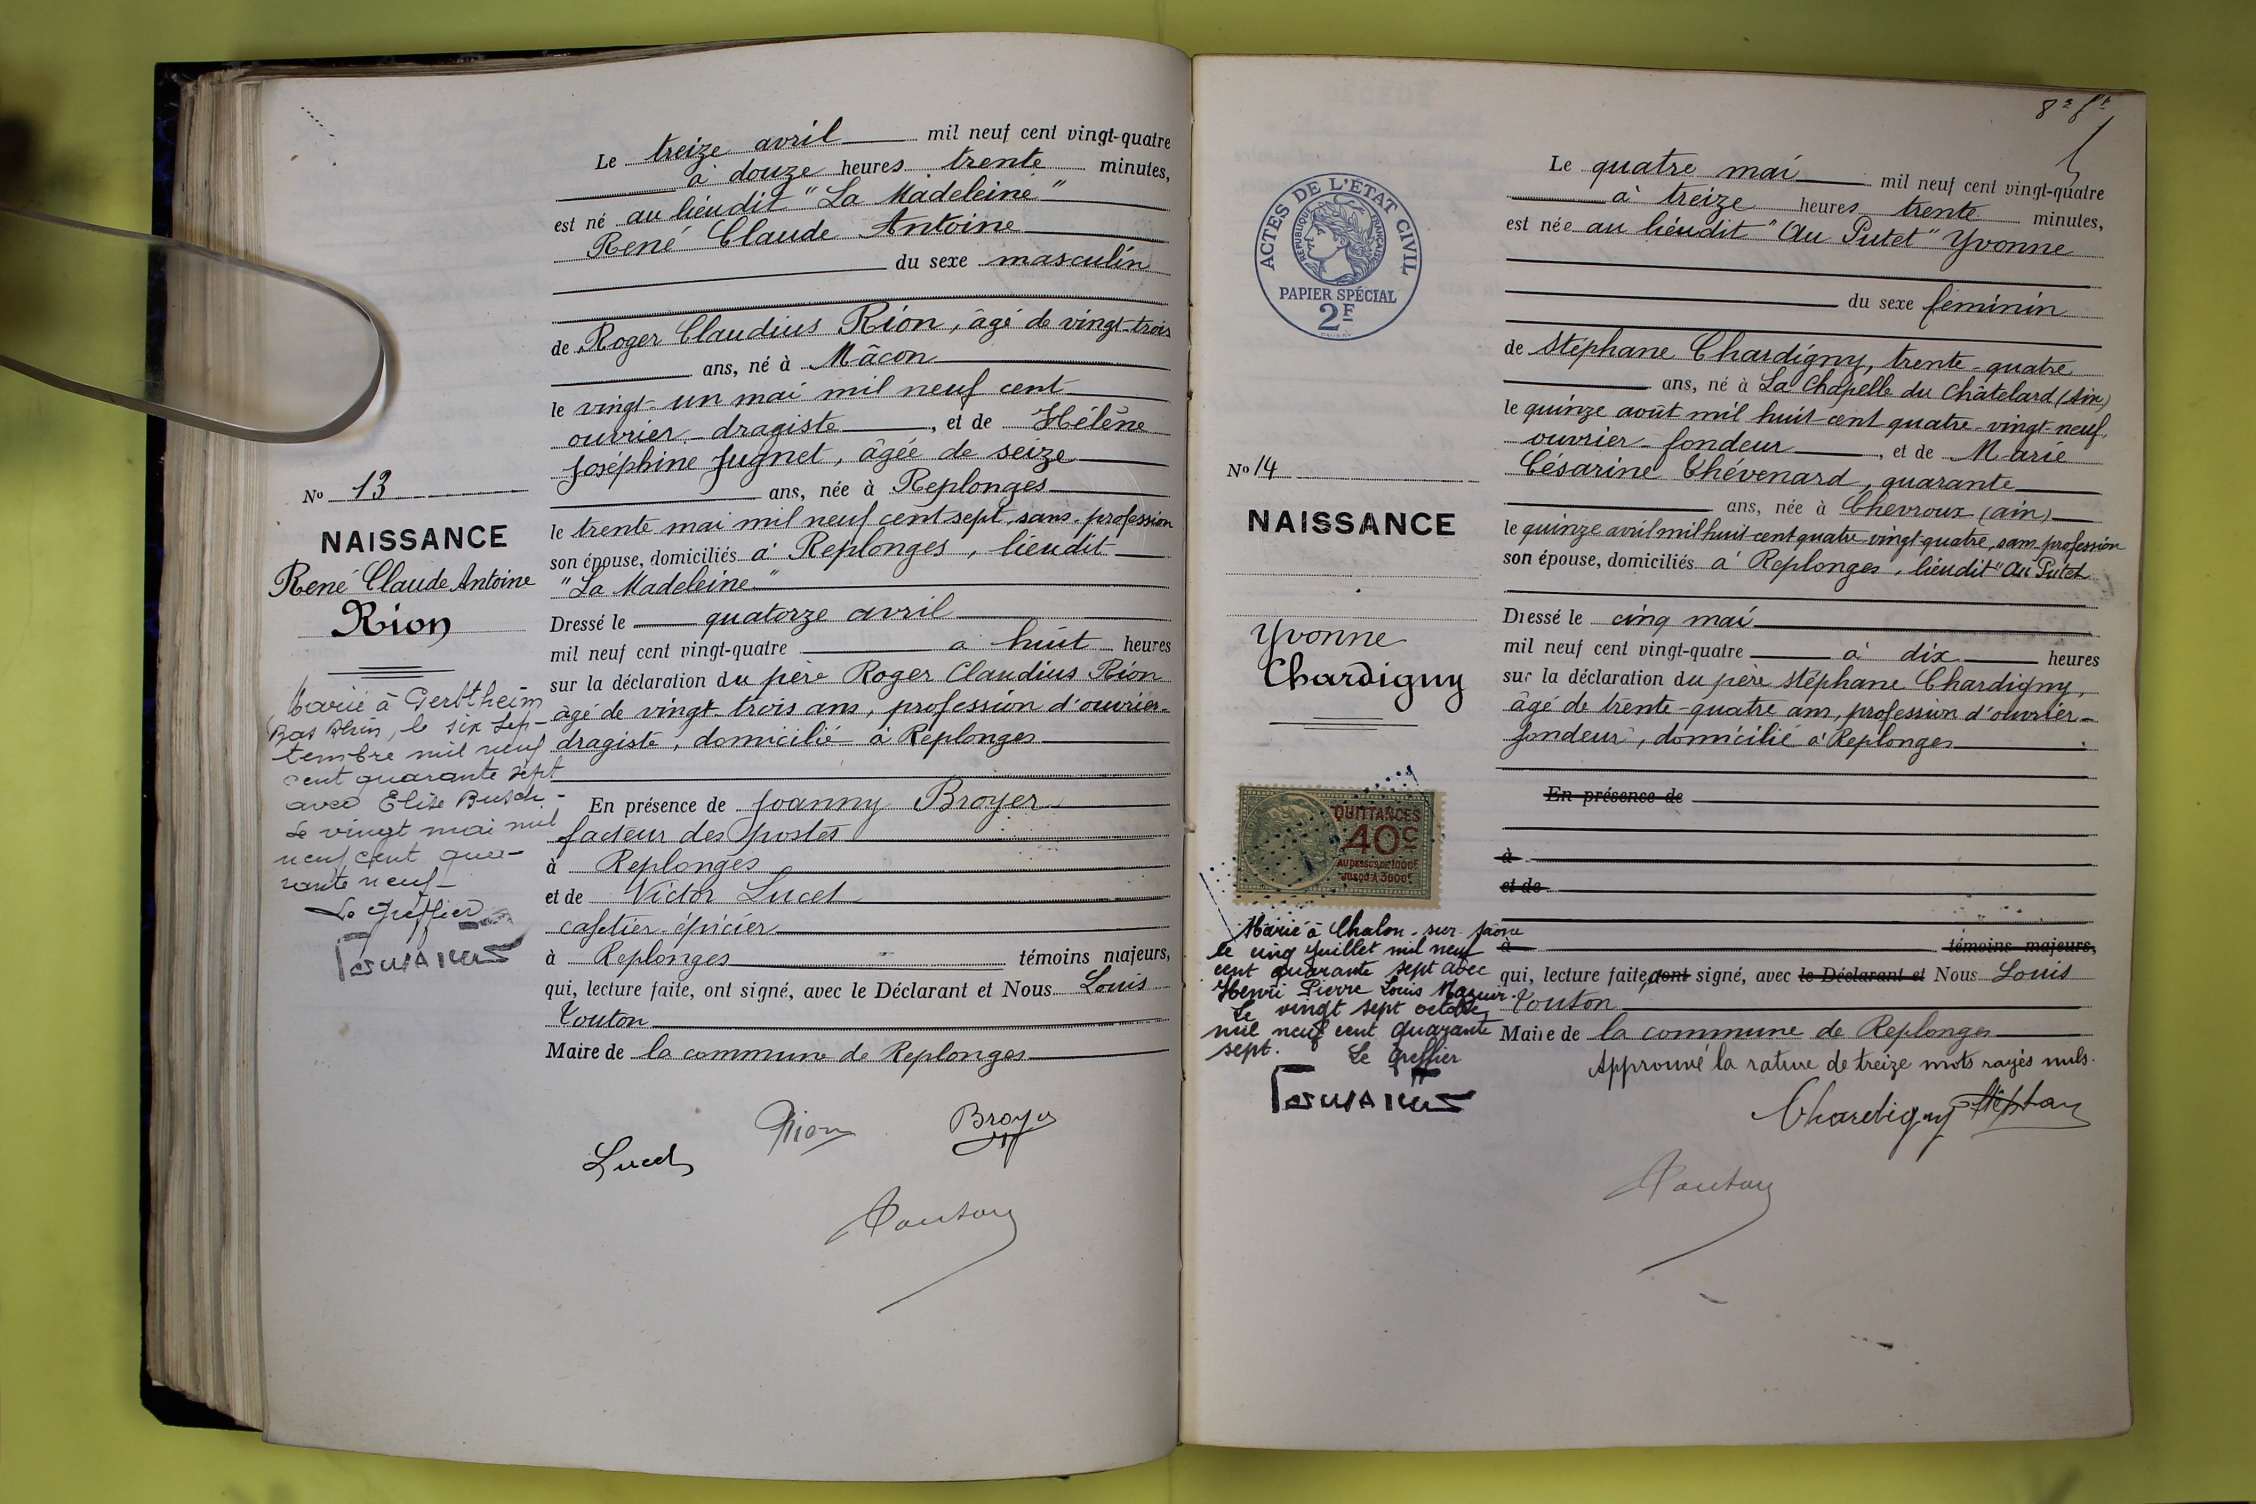 Le treize avril mil neuf cent vingt-quatre
à douze heures trente minutes,
est né au lieudit "La Madeleine"
René Claude Antoine
du sexe masculin
de Roger Claudius Rion, âgé de vingt-trois
ans, né à Mâcon
le vingt-un mai mil neuf cent
ouvrier dragiste, et de Hélène
Joséphine Jugnet, âgée de seize
ans, née à Replonges
le trente mai mil neuf cent sept, sans profession
son épouse, domiciliés à Replonges, lieudit
"La Madeleine"
Dressé le quatorze avril
mil neuf cent vingt-quatre à huit heures
sur la déclaration du père Roger Claudius Rion
âgé de vingt-trois ans, profession d'ouvrier-
dragiste, domicilié à Replonges
En présence de Joanny Broyer
facteur des postes
à Replonges
et de Victor Lucet
cafetier-épicier
à Replonges témoins majeurs,
qui, lecture faite, ont signé, avec le Déclarant et Nous Louis
Touton
Maire de la commune de Replonges
Lucet Rion Broyer
Touton
No 13
NAISSANCE
René Claude Antoine
Rion
Marié à Gerstheim
Bas Rhin, le six Sep-
tembre mil neuf
cent quarante sept
avec Elise Busch.-
Le vingt mai mil
neuf cent qua-
rante neuf-
Le Greffier
8e ft
ACTES DE L'ETAT CIVIL
REPUBLIQUE FRANÇAISE
PAPIER SPÉCIAL
2F
No 14
NAISSANCE
Yvonne
Chardigny
QUITTANCES
40c
AU DESSUS DE 1000F
JUSQU'A 3000F
Marié à Chalon-sur-Saône
le cinq Juillet mil neuf
cent quarante sept avec
Henri Pierre Louis Mazuir.
Le vingt sept octobre
mil neuf cent quarante
sept. Le Greffier
Le quatre mai mil neuf cent vingt-quatre
à treize heures trente minutes,
est née au lieudit "Au Putet" Yvonne
du sexe feminin
de Stéphane Chardigny, trente-quatre
ans, né à La Chapelle du Châtelard (Ain)
le quinze août mil huit cent quatre-vingt-neuf,
ouvrier fondeur, et de Marie
Césarine Thévenard, quarante
ans, née à Chevroux (ain)
le quinze avril mil huit cent quatre-vingt-quatre, sans profession
son épouse, domiciliés à Replonges, lieudit "Au Putet
Dressé le cinq mai
mil neuf cent vingt-quatre à dix heures
sur la déclaration du père Stéphane Chardigny,
âgé de trente-quatre ans, profession d'ouvrier-
fondeur, domicilié à Replonges
En présence de
à
et de
à témoins majeurs,
qui, lecture faite, ont signé, avec le Déclarant et Nous Louis
Touton
Maire de la commune de Replonges
Approuvé la rature de treize mots rayés nuls.
Chardigny Stéphan
Touton